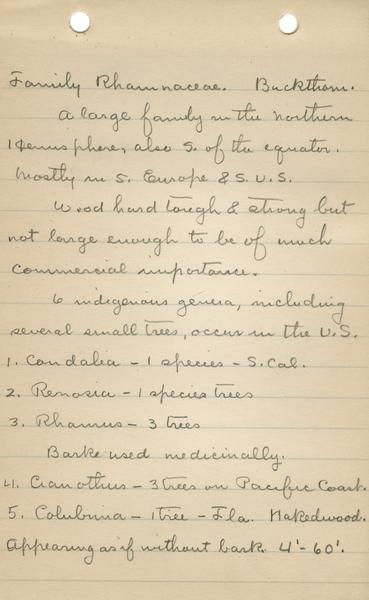 Family Rhamnaceae. Buckthorn.
A large family in the northern
Hemisphere, also S. of the equator.
Mostly in S. Europe & S. U.S.
Wood hard tough & strong but
not large enough to be of much
commercial importance.
6 indigenous genera, including
several small trees, occur in the U.S.
1. Condalia - 1 species - S. Cal.
2. Renosia - 1 species trees
3. Rhamnus - 3 trees
Barke used medicinally.
4. Cianothus - 3 trees on Pacific Coast.
5. Colubrina - 1 tree - Fla. Nakedwood.
Appearing as if without bark. 4'-60'.